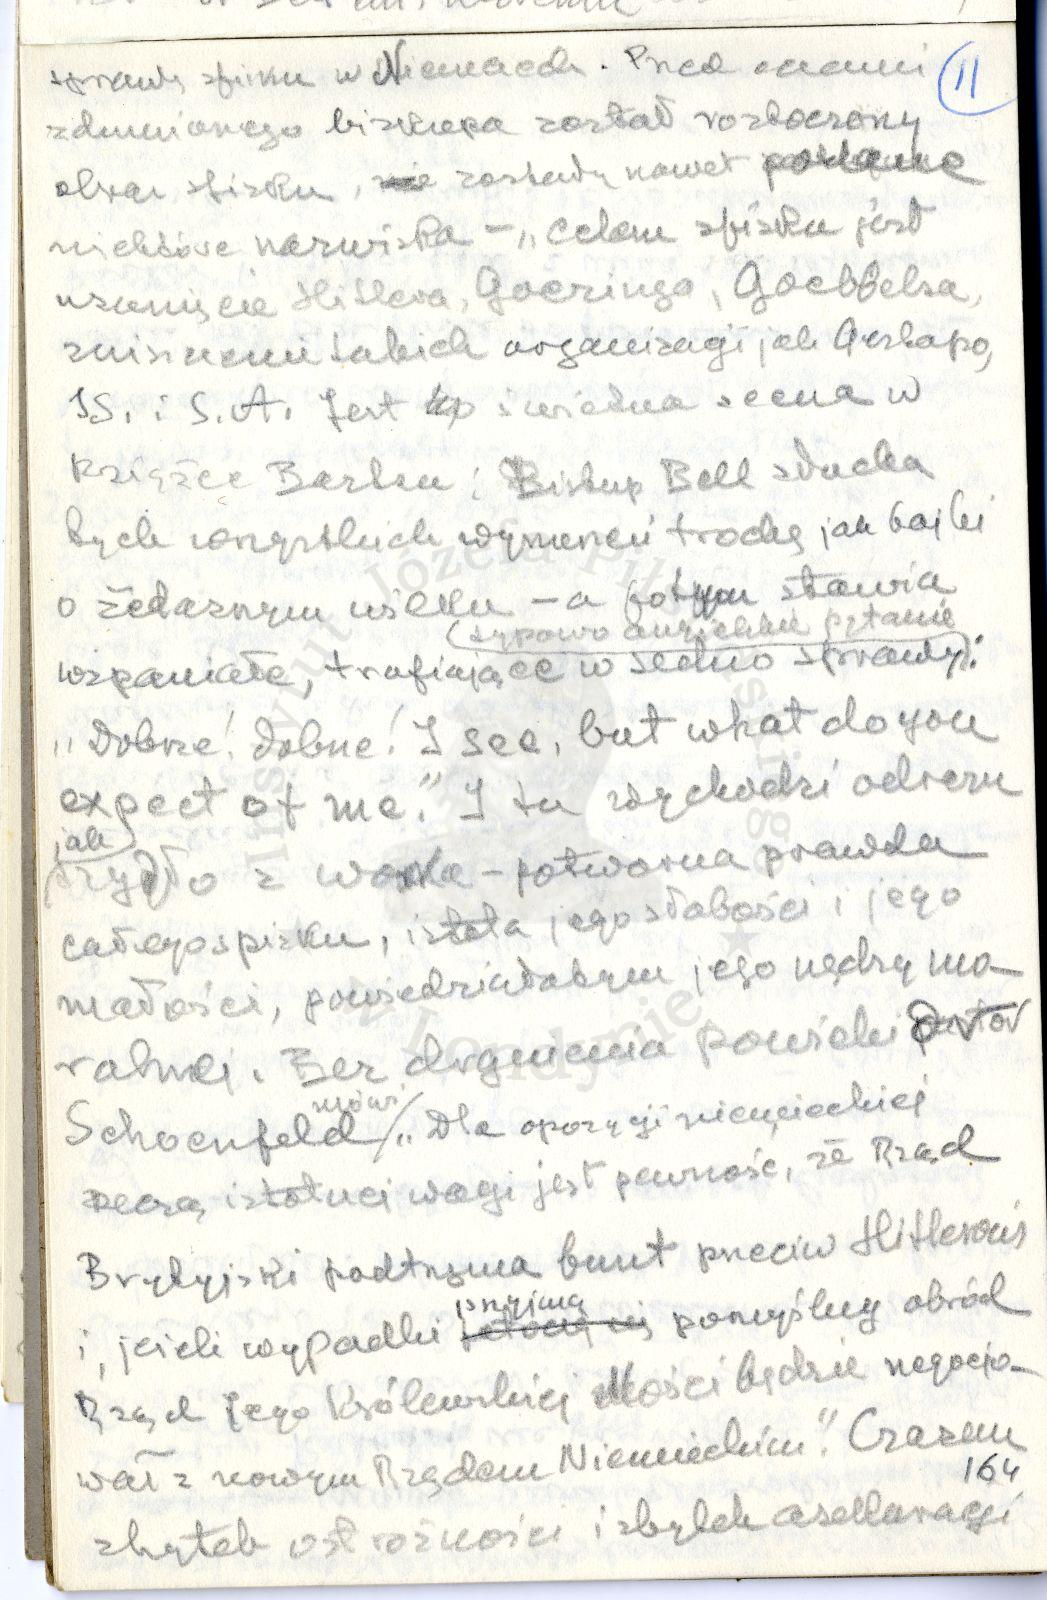 sprawę spisku w Niemczech. Przed oczami
11
zdumionego biskupa został roztoczony
obraz spisku, zostały nawet podane
niektóre nazwiska – „Celem spisku jest
usunięcie Hitlera, Goeringa, Goebbelsa,
zniszczenie takich organizacji jak Gestapo,
SS. i S.A. Jest świetna scena w
książce Bartza: Biskup Bell słucha
tych wszystkich wynurzeń trochę jak bajki
o żelaznym wilku – a potym stawia
(typowo angielskie pytanie
wspaniałe, trafiające w sedno sprawy):
„Dobrze! dobrze! I see, but what do you
expect of me." I tu wychodzi odrazu
jak
szydło z worka – potworna prawda
całego spisku, istota jego słabości i jego
małości, powiedziałabym jego nędzy mo-
ralnej. Bez drgnienia powieki pastor
Schoenfeld mówi „Dla opozycji niemieckiej
rzeczą istotnej wagi jest pewność, że Rząd
Brytyjski podtrzyma bunt przeciw Hitlerowi
przyjmą
i, jeżeli wypadki pomyślny obrót
Rząd Jego Królewskiej Mości będzie negocjo-
wał z nowym Rządem Niemieckim". Czasem
164
zbytek ostrożności i zbytek asekuracji